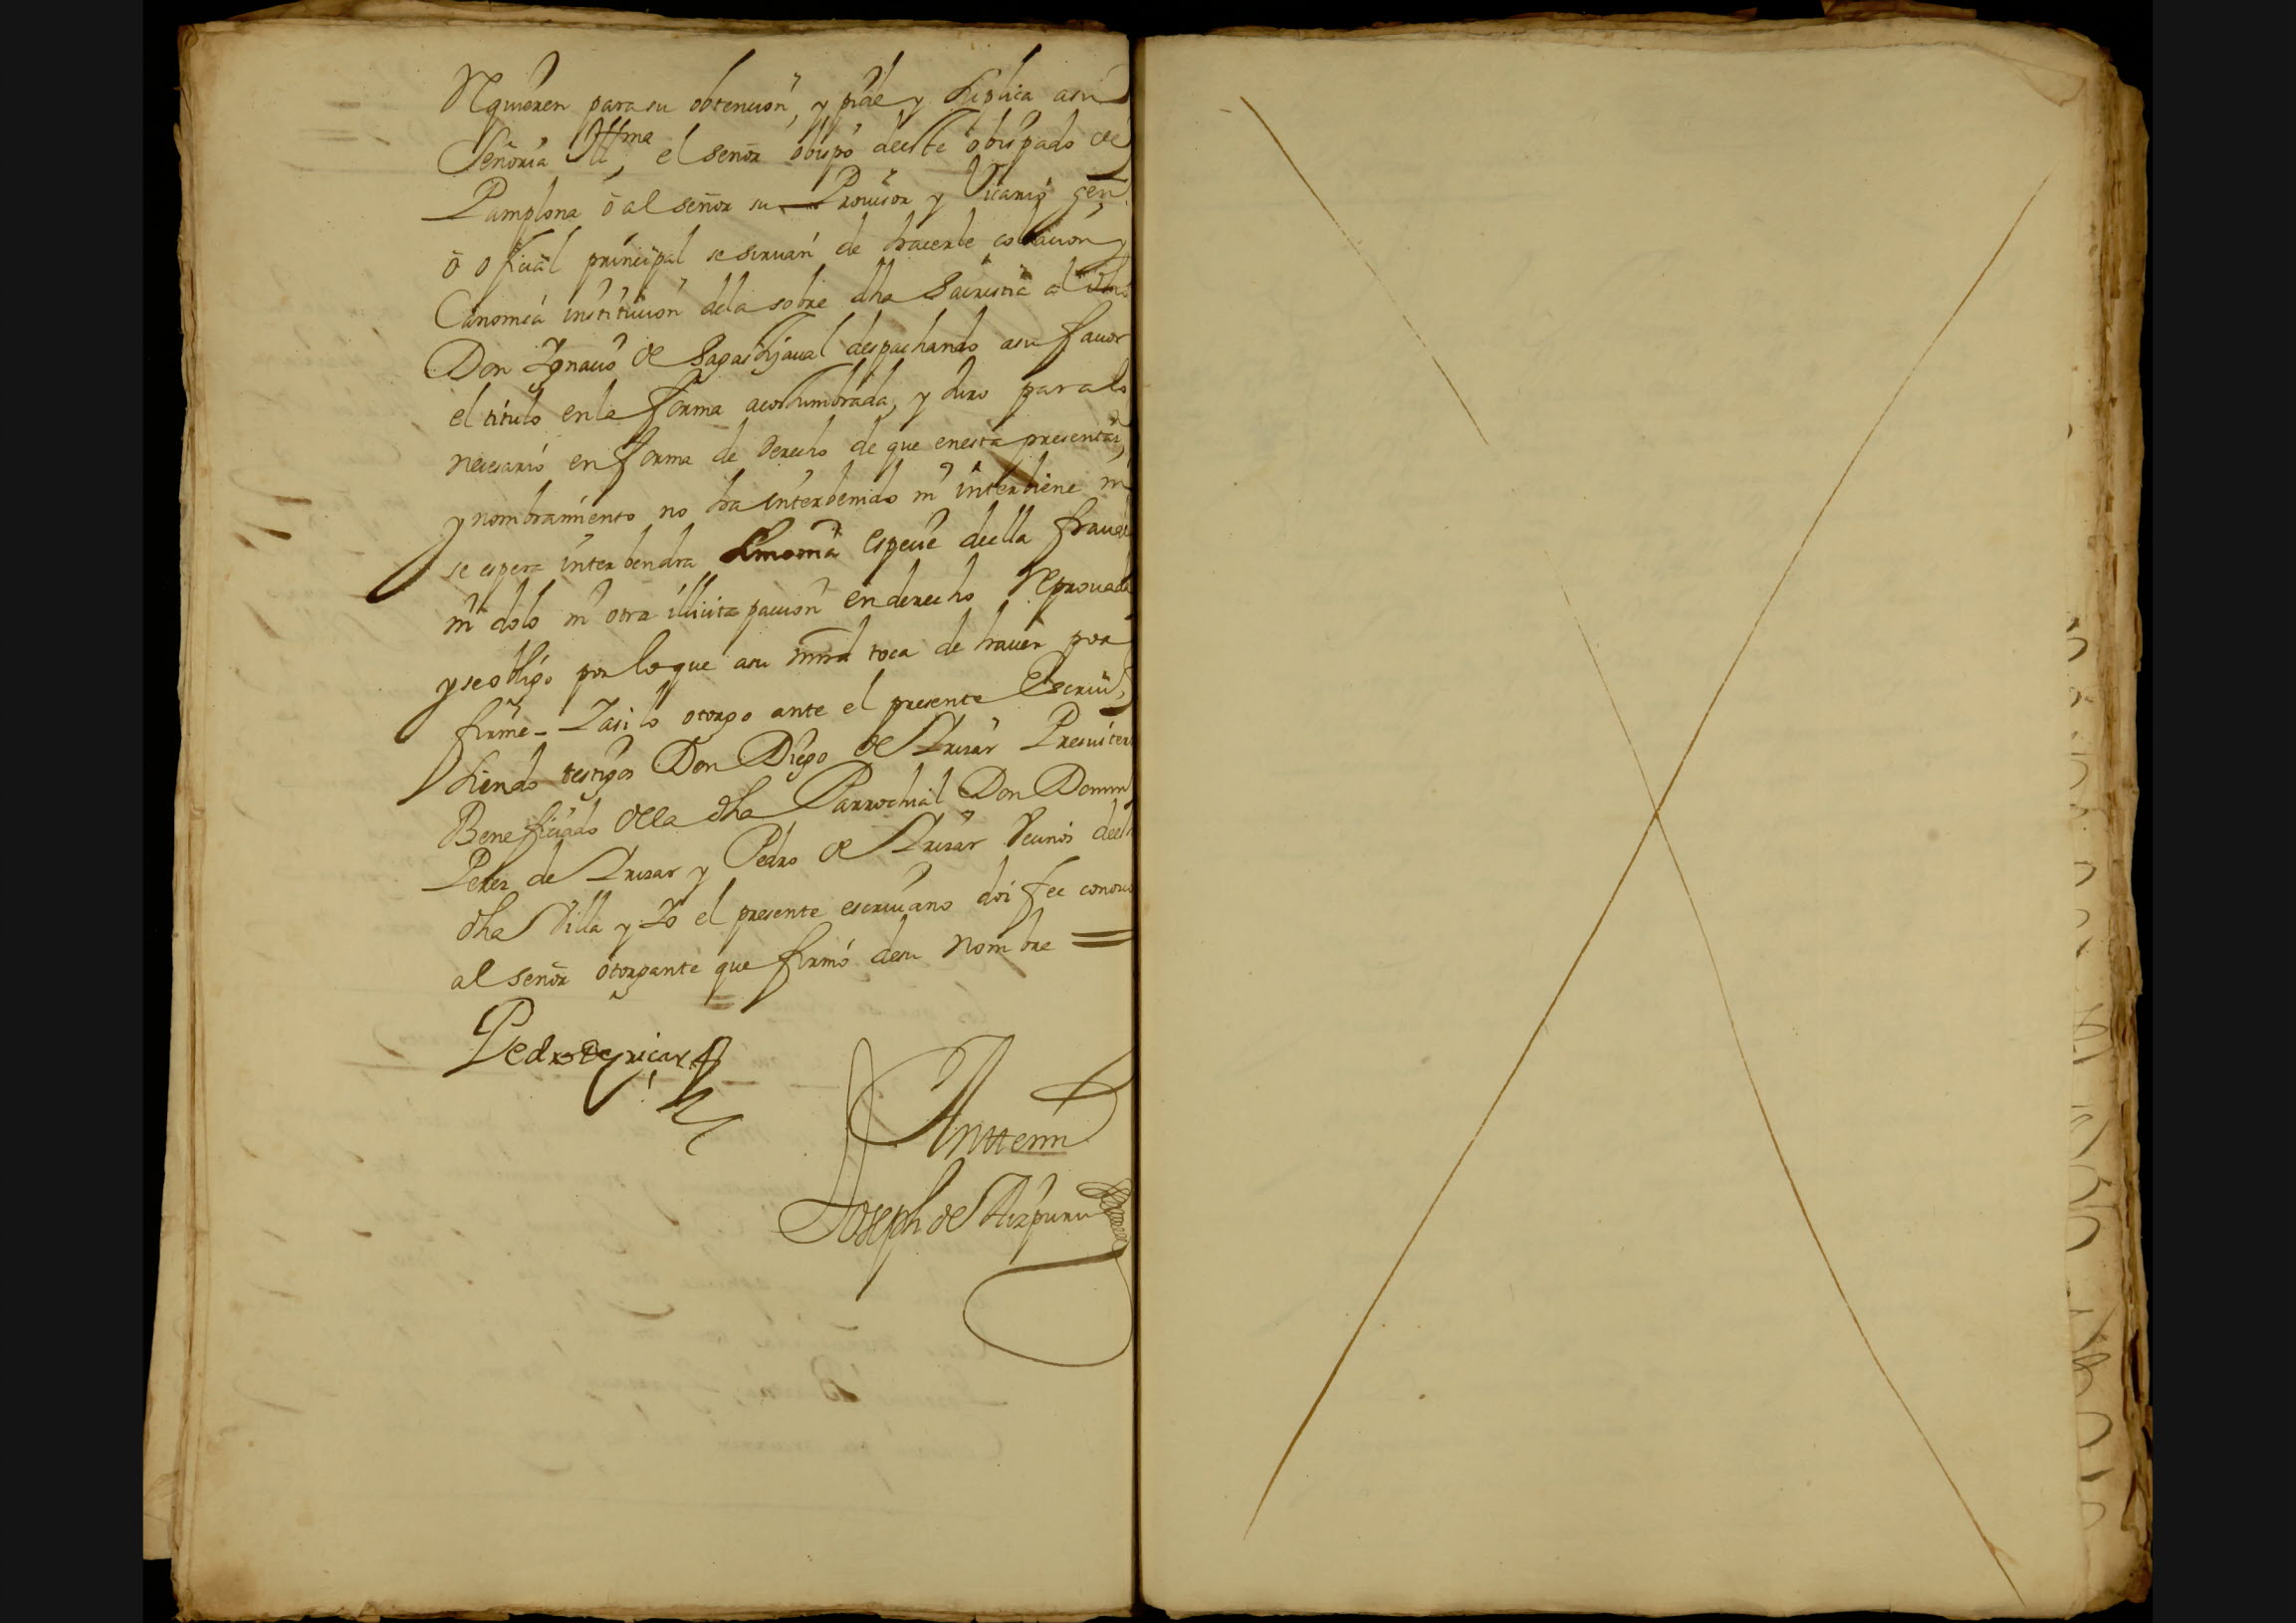 Requieren para su obtencion, y pide y suplica asu
Señoria Illma, el señor obispo deeste obispado de
Pamplona ö al señor su Provisor y Vicario gen
ö oficial principal se sirvan de hacerle colacion y
Canonica institucion dela sobre dha Sacristia al dho
Don Ygnacio de Sagastiçaval despachando asu favor
el titulo enla forma acostumbrada, y juro para lo
necesario en forma de derecho de que enesta presentaz,
y nombramiento no ha interbenido ni interbiene ni
se espera interbendra simonia especie deella fraude
ni dolo ni otra illicita paccion en derecho Reprovada
y se obligo por loque asu mrd toca de haver por
firme - Y asi lo otorgo ante el presente Escriu,
siendo testigos Don Diego de Yrizar Presvitero
Beneficiado dela dha Parrochial Don Domin
Perez de Yrizar y Pedro de Yrizar Vecinos deela
dha Villa y Yo el presente escrivano doi fee conozco
al señor otorgante que firmó desu nombre =
Pedro de Yriçar
Anttemi
Joseph de Aizpuru